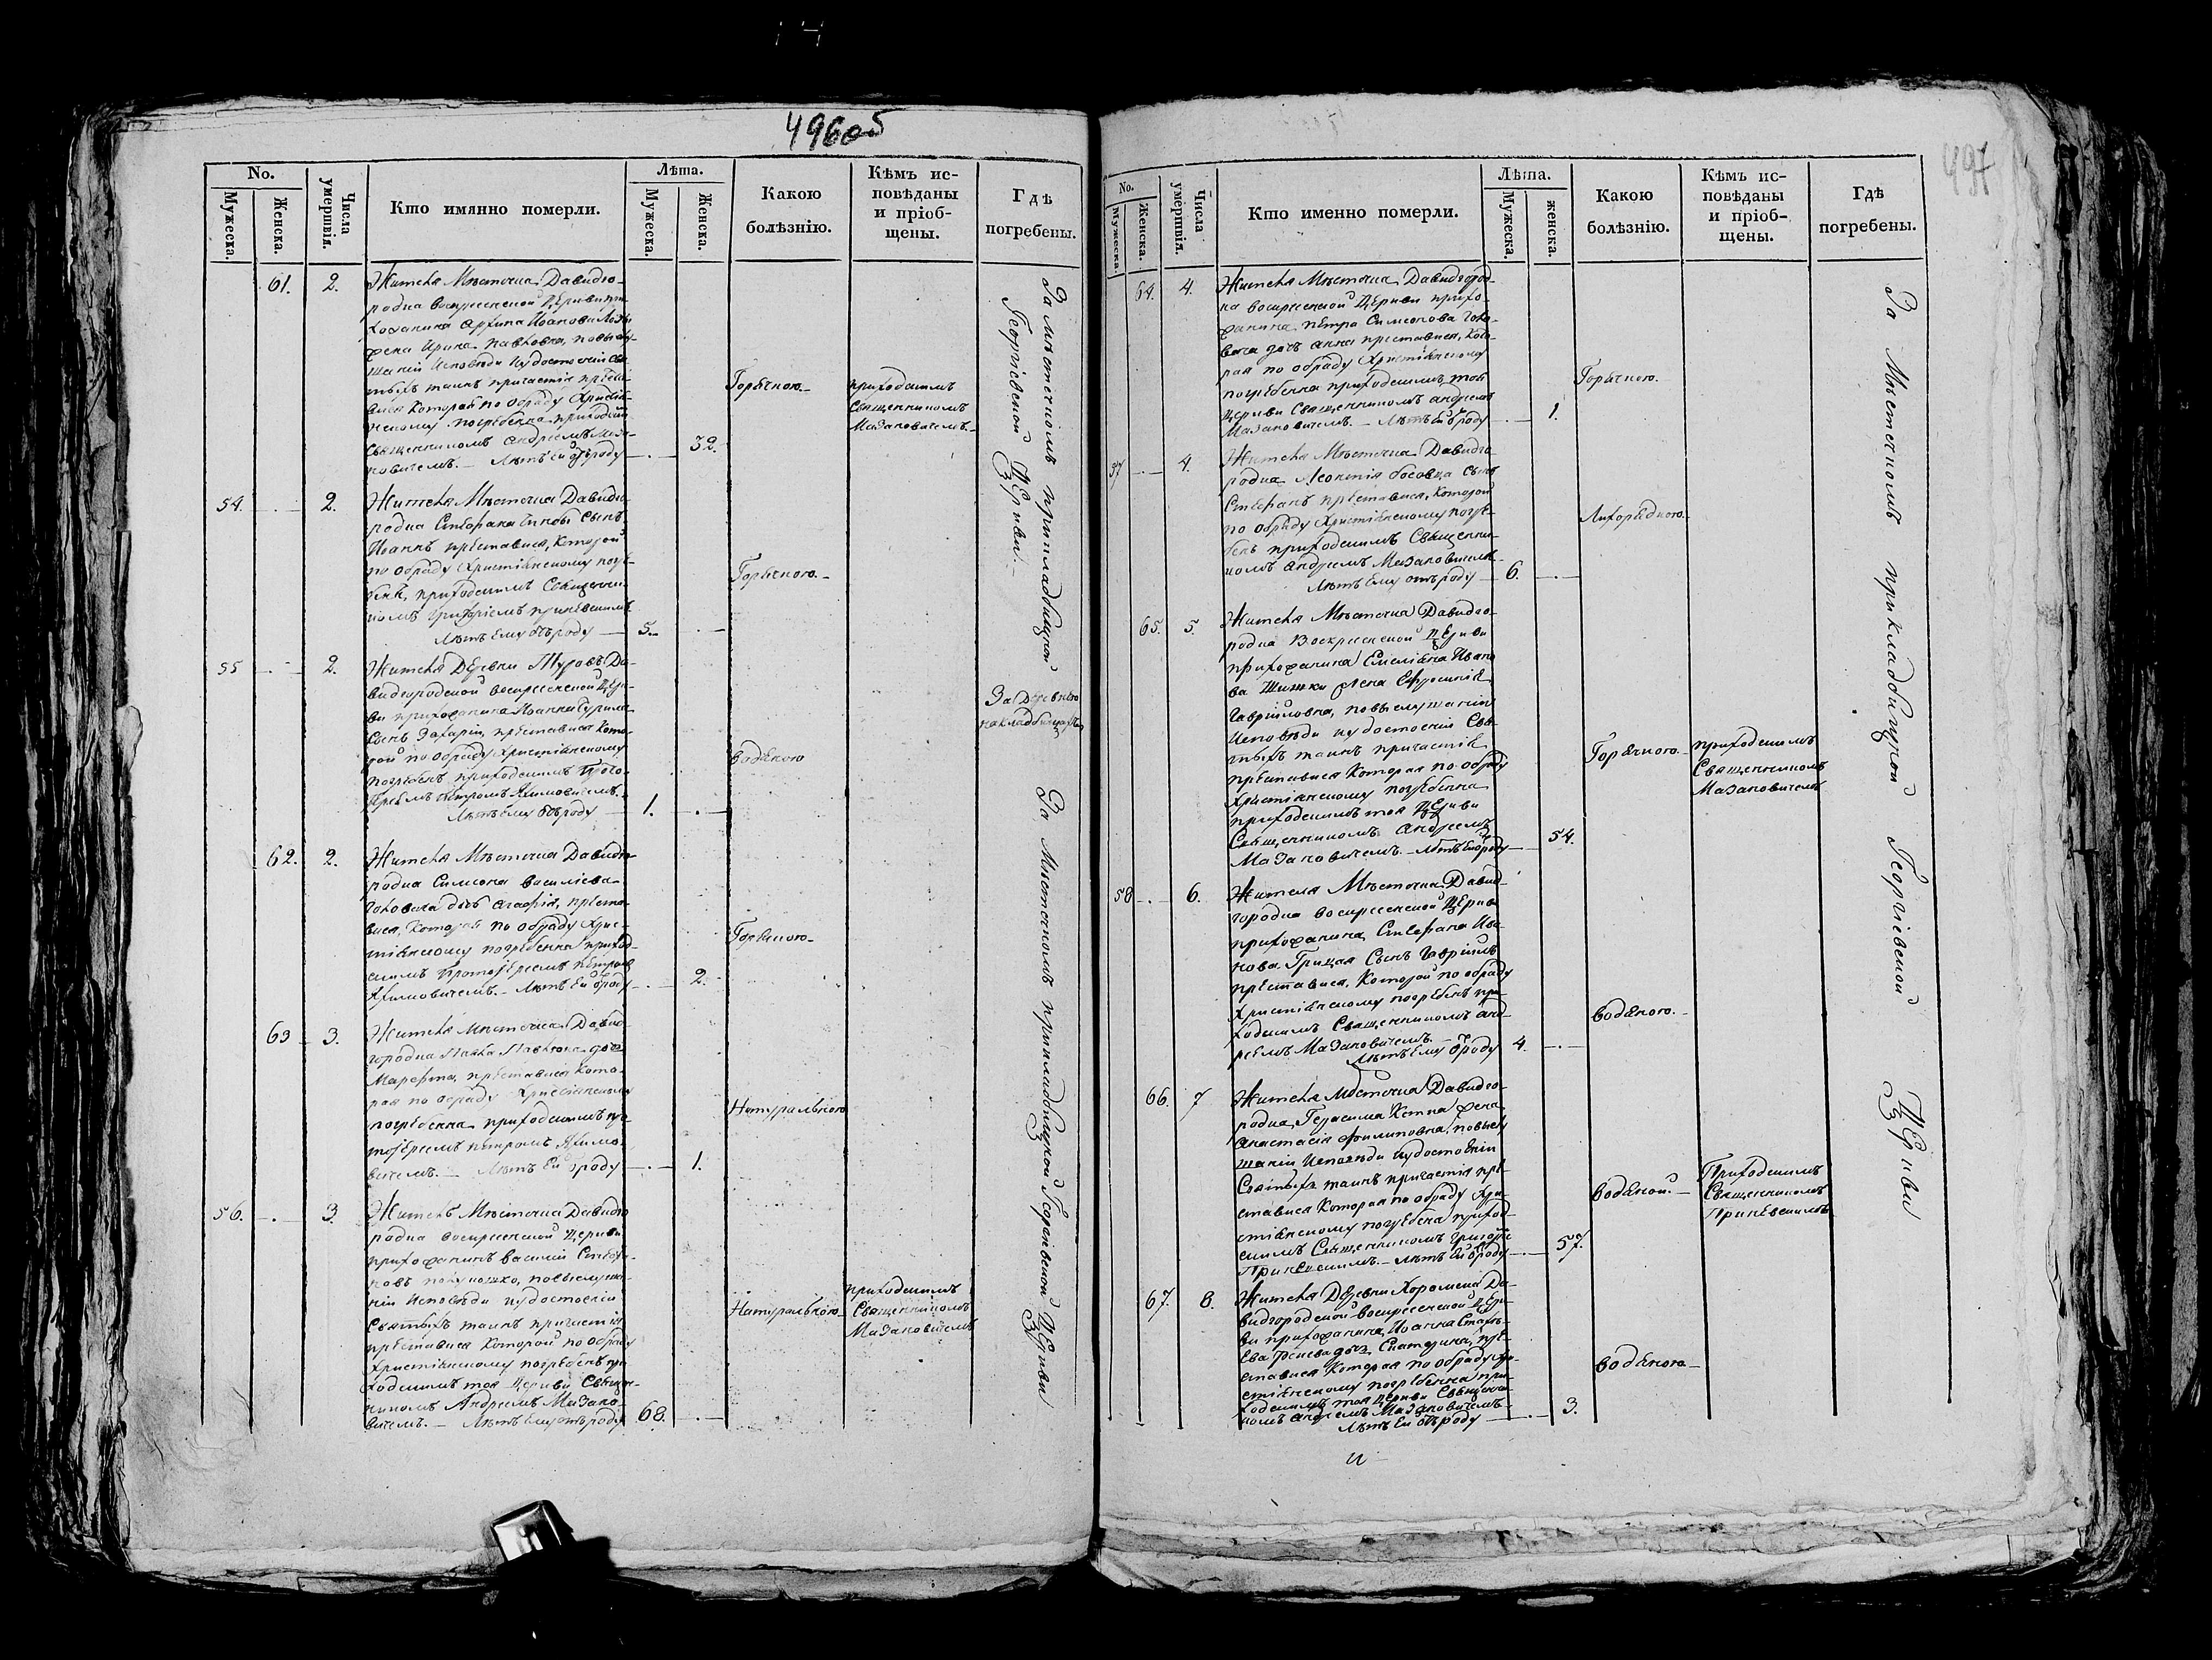 496об
No.
Мужеска.
Женска.
Числа умершвія.
Кто имянно померли.
Лѣта.
Мужеска.
Женска.
Какою болѣзнію.
Кѣмъ ис-
повѣданы
и пріоб-
щены.
Гдѣ
погребены.
61. 2.
Жителя Мѣстечка Давидго-
родка воскресенской Церкви при-
хожанина Іоанова
жена Ирина Павловна, по выслу-
шаніи исповѣди и удостоеніи Свя-
тыхъ таинъ причастія преста-
вися которая по обряду Христіан-
скому погребенна приходскимъ
Священникомъ Андреемъ Маза-
новичемъ. — Лѣтъ ей отроду — 32.
Горячкою. —
приходскимъ
Священникомъ
Мазановичемъ. —
54. 2.
Жителя Мѣстечка Давидго-
родка Стефана сынъ
Іоаннъ преставися, которой
по обряду Христіанскому погре-
бенъ, приходскимъ Священни-
комъ Григоріемъ
Лѣтъ ему отъроду — 5.
Горячкою. —
55 2.
Жителя Деревни Туровъ Да-
видгородской воскресенской Цер-
кви прихожанина Іоанна
Сынъ Захарій преставися кото-
рой по обряду Христіанскому
погребенъ приходскимъ Прото-
іереемъ Петромъ
Лѣтъ ему отъроду — 1.
водяною
За Деревнею
на кладбищахъ
62. 2.
Жителя Мѣстечка Давидго-
родка Симеона Василіева
дочь Агафія, преста-
вися, которая по обряду Хрис-
тіанскому погребенна приход-
скимъ Протоіереемъ Петромъ
Лѣтъ ей отроду — 2.
Горячкою —
63 3.
Жителя Мѣстечка Давид-
городка Павла дочь
Марефта, преставися кото-
рая по обряду Христіанскому
погребенна приходскимъ про-
тоіереемъ Петромъ
Лѣтъ ей отроду — 1.
Натуральною
56. 3.
Житель Мѣстечка Давидго
родка воскресенской Церкви
прихожанинъ Василій Стефа-
новъ по выслуша-
ніи Исповѣди и удостоеніи
Святыхъ таинъ причастія
преставися которой по обряду
Христіанскому погребенъ при-
ходскимъ тоя Церкви Священ-
никомъ Андреемъ Мазано-
вичемъ. — Лѣтъ ему отъроду 68.
Натуральною
приходскимъ
Священникомъ
Мазановичемъ
За Мѣстечкомъ при кладбищной
Георгіевской Церкви. —
За Мѣстечкомъ при кладбищной Георгіевской Церкви
497
No.
Мужеска.
Женска.
Числа умершвія.
Кто именно померли.
Лѣта.
Мужеска.
женска.
Какою болѣзнію.
Кѣмъ ис-
повѣданы
и пріоб-
щены.
Гдѣ
погребены.
64. 4.
Жителя Мѣстечка Давидгород-
ка воскресенской Церкви прихо-
жанина Петра Симеонова
дочь Анна преставися, кото-
рая по обряду Христіанскому
погребенна приходскимъ той
Церкви Священникомъ Андреемъ
Мазановичемъ. — Лѣтъ ей отроду — 1.
Горячкою.
57 4.
Жителя Мѣстечка Давидго
родка Леонтія Босовца сынъ
Стефанъ преставися, которой
по обряду Христіанскому погре-
бенъ приходскимъ Священни-
комъ Андреемъ Мазановичемъ
Лѣтъ ему отъроду — 6.
Лихорадкою.
65. 5.
Жителя Мѣстечка Давидго-
родка Воскресенской Церкви
прихожанина Емеліана Ивано
ва Шишки жена Ефросинія
Гавриловна, по выслушаніи
Исповѣди и удостоеніи Свя-
тыхъ таинъ причастія
преставися которая по обряду
Христіанскому погребенна
приходскимъ тоя Церкви
Священникомъ Андреемъ
Мазановичемъ. — Лѣтъ ей отроду — 54.
Горячкою. —
приходскимъ
Священникомъ
Мазановичемъ
58 6.
Жителя Мѣстечка Давид-
городка воскресенской Церкви
прихожанина Стефана Ива-
нова Грицая Сынъ Гавріилъ
преставися, которой по обряду
Христіанскому погребенъ при-
ходскимъ Священникомъ Анд-
реемъ Мазановичемъ. —
Лѣтъ ему отроду 4.
водяною. —
66. 7
Жителя Мѣстечка Давидго-
родка, Герасима жена
Анастасія Филиповна, по выслу
шаніи Исповѣди и удостоеніи
Святыхъ таинъ причастія пре-
ставися которая по обряду Хри-
стіанскому погребена приход-
скимъ Священникомъ Григоріемъ
Лѣтъ ей отроду — 57.
водяной. —
Приходскимъ
Священникомъ
67. 8.
Жителя Деревни Хоромска Да-
видгородской воскресенской Цер-
кви прихожанина, Іоанна
дочь Екатерина, пре-
ставися которая по обряду Хри-
стіанскому погребенна при-
ходскимъ тоя Церкви Священни-
комъ Андреемъ Мазановичемъ.
Лѣтъ ей отъроду — 3.
водяною —
За Мѣстечкомъ при кладбищной Георгіевской Церкви